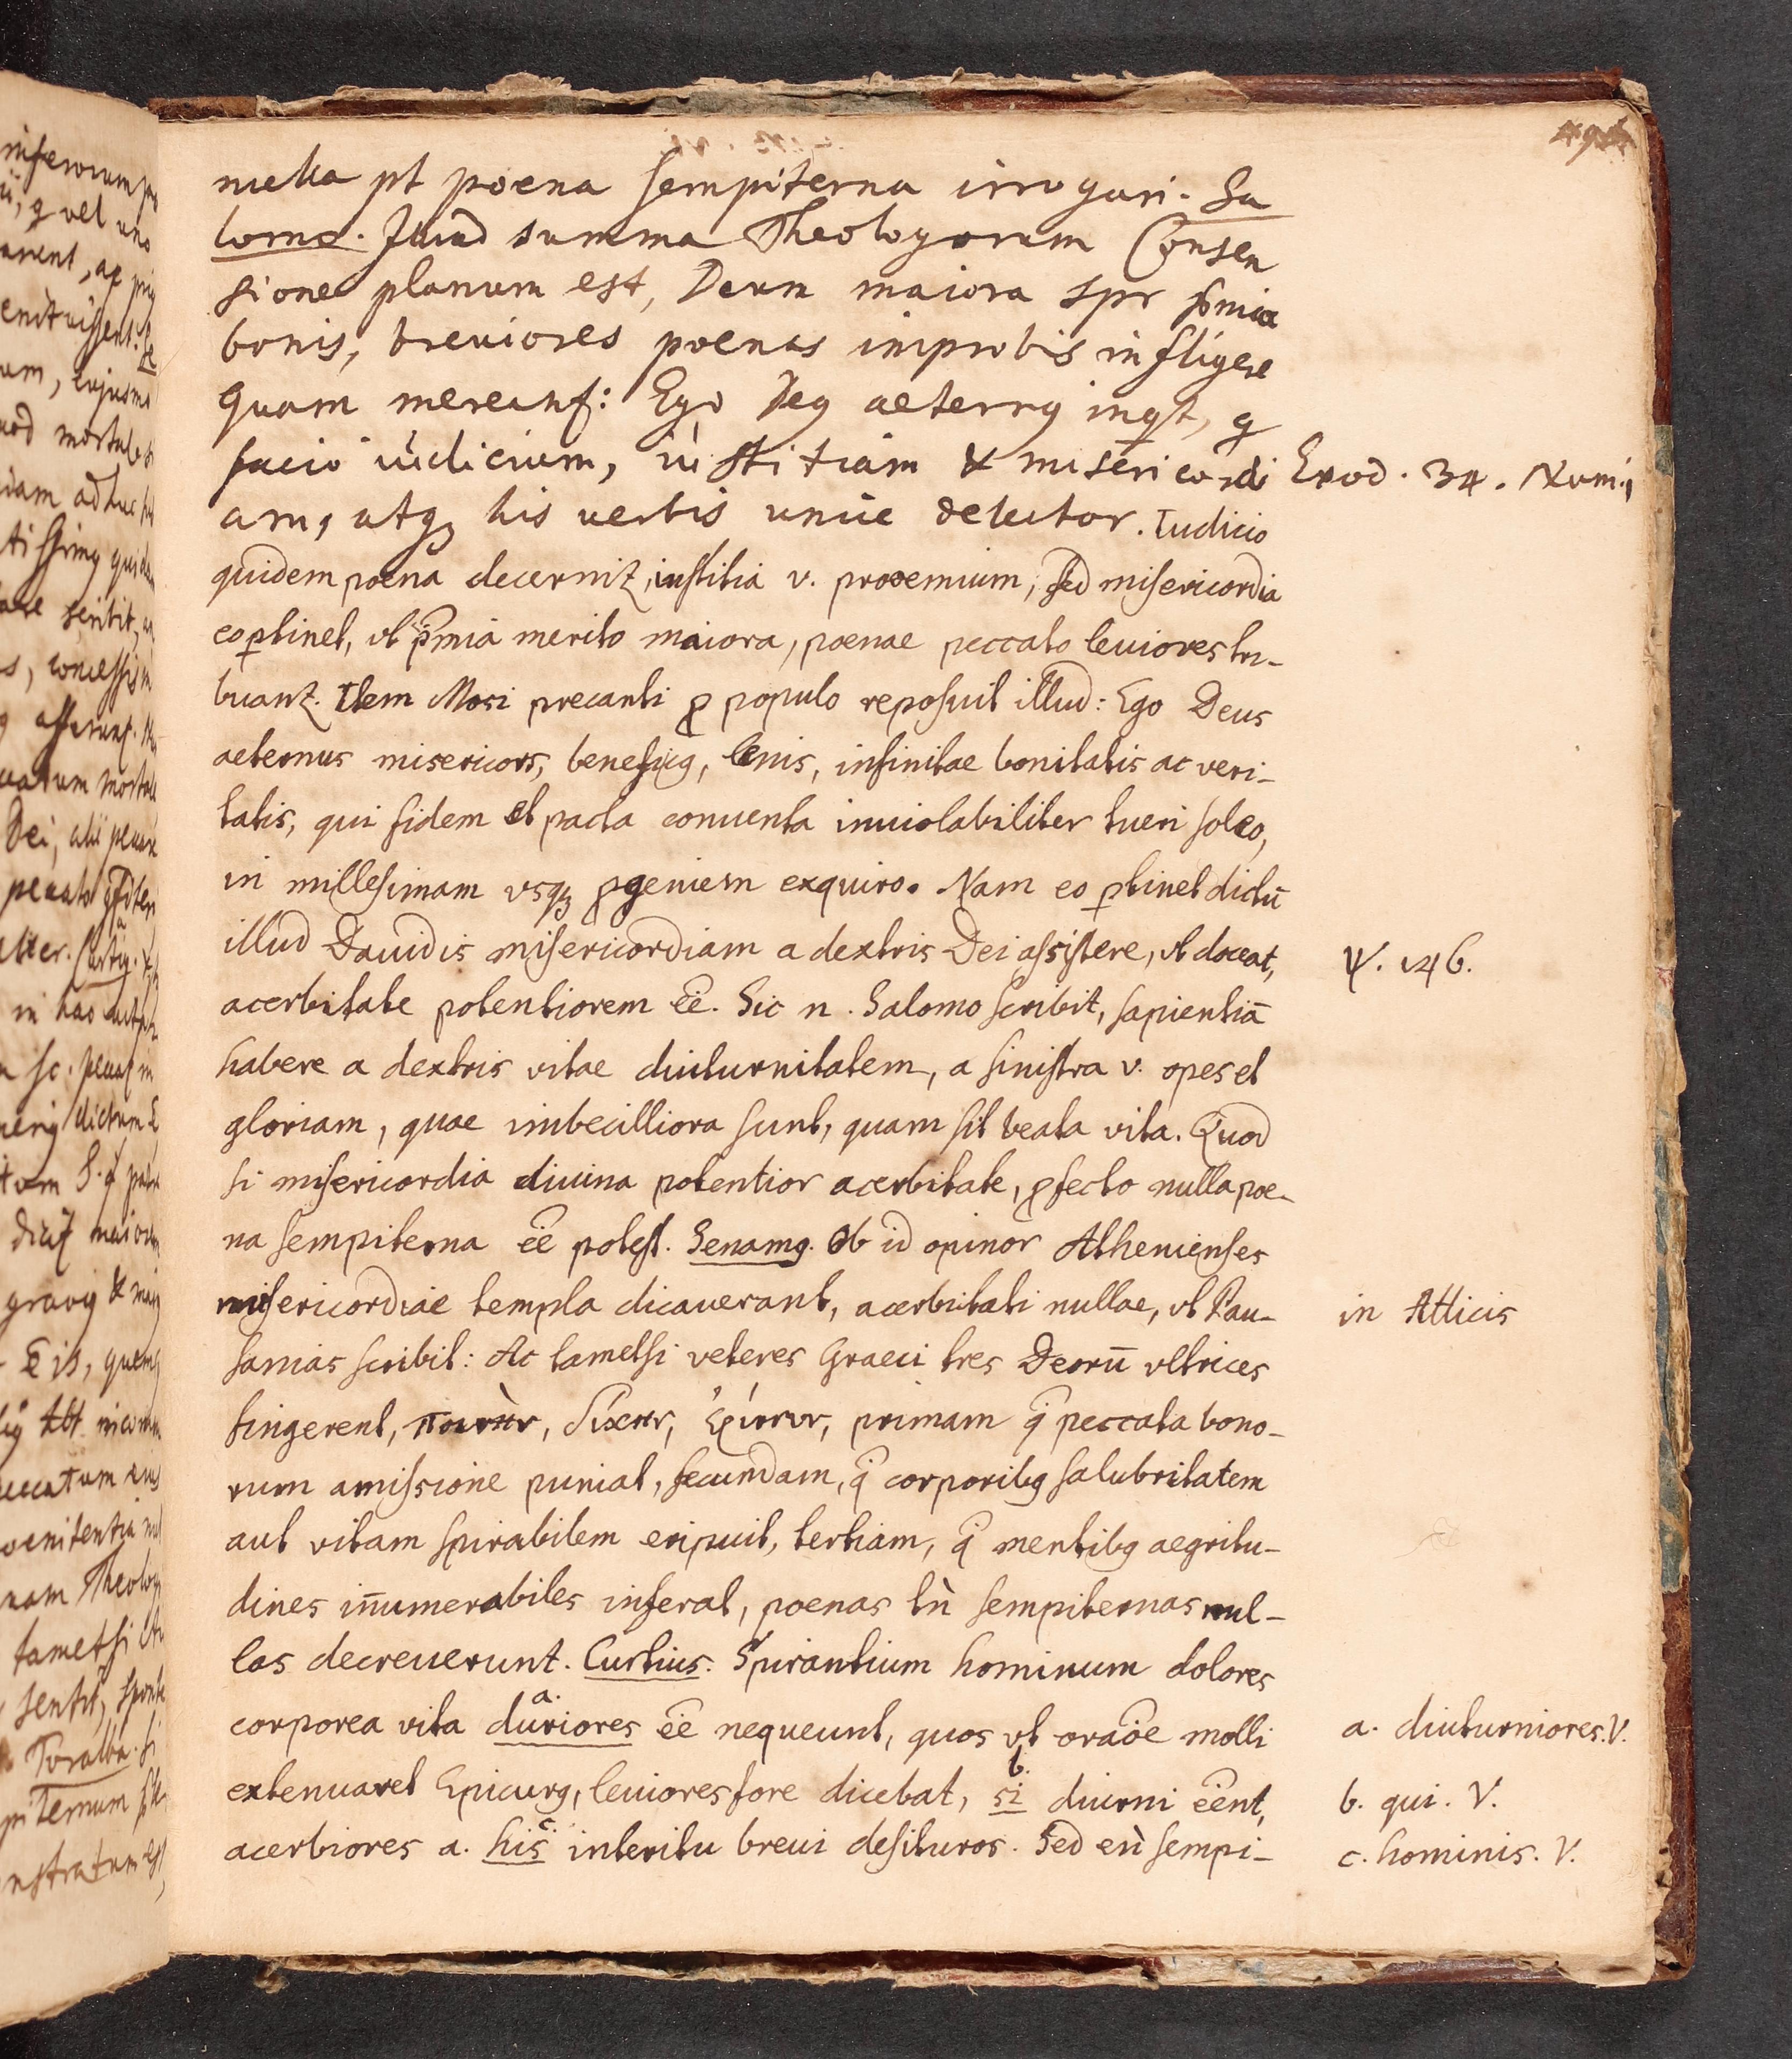 nulla pt poena sempiterna irrogari. Sa
lomo. Illud summa Theologorum Consen
sione planum est, Deum maiora spr p̄mia
bonis, breuiores poenas improbis infligere
quam mereant: Ego Deꝰ aeternꝰ inqt, q
facio iudicium, iustitiam & misericordi
am, atqꝫ his verbis unice delector. Iudicio
quidem poena decernit, iustitia v. proemium, sed misericordia
eo ꝑtinet, vt p̄mia merito maiora, poenae peccato leuiores tri-
buant. Item Mosi precanti ꝓ populo reposuit illud: Ego Deus
aeternus misericors, beneficꝰ, lenis, infinitae bonitatis ac veri-
tatis, qui fidem et pacta conuenta inuiolabiliter tueri soleo,
in millesimam vsqꝫ ꝓgeniem exquiro. Nam eo ꝑtinet dictū
illud Dauidis misericordiam a dextris Dei assistere, vt doceat,
acerbitate potentiorem ēe. Sic n. Salomo scribit, sapientiā
habere a dextris vitae diuturnitatem, a sinistra v. opes et
gloriam, quae imbecilliora sunt, quam sit beata vita. Quod
si misericordia diuina potentior acerbitate, ꝓfecto nulla poe-
na sempiterna ēe potest. Senamꝰ. Ob id opinor Athenienses
misericordiae templa dicauerant, acerbitati nullae, vt Pau-
sanias scribit: Ac tametsi veteres Graeci tres Deorū vltrices
fingerent, ποινὴν, δίκην, Ἐρίννυν, primam q̄ peccata bono-
rum amissione puniat, secundam, q̄ corporibꝰ salubritatem
aut vitam spirabilem eripuit, tertiam, q̄ mentibꝰ aegritu-
dines iñumerabiles inferat, poenas tñ sempiternas nul-
las decreuerunt. Curtius. Spirantium hominum dolores
corporea vita duriores ēe nequeunt, quos vt oraōe molli
extenuaret Epicurꝰ, leuiores fore dicebat, si diurni ēent,
acerbiores a. his interitu breui desituros. Sed eñ sempi-
Exod. 34. Num.
ψ. 146.
in Atticis
a. diuturniores. V.
b. qui. V.
c. hominis. V.